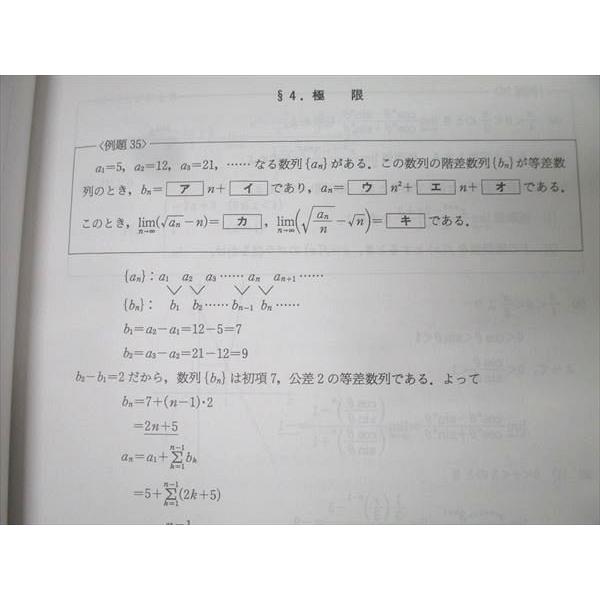 §4. 極 限
〈例題 35〉
a₁=5, a₂=12, a₃=21, ……なる数列{aₙ}がある. この数列の階差数列{bₙ}が等差数
列のとき, bₙ=ア n+イ であり, aₙ=ウ n²+エ n+オ である.
このとき, lim_{n→∞}(√aₙ−n)=カ, lim_{n→∞}(√(aₙ/n)−√n)=キ である.
{aₙ}: a₁ a₂ a₃ …… aₙ aₙ₊₁ ……
{bₙ}: b₁ b₂ …… bₙ₋₁ bₙ ……
b₁=a₂−a₁=12−5=7
b₂=a₃−a₂=21−12=9
b₂−b₁=2だから, 数列{bₙ}は初項7, 公差2の等差数列である. よって
bₙ=7+(n−1)·2
=2n+5
aₙ=a₁+∑_{k=1}^{n−1} bₖ
=5+∑_{k=1}^{n−1}(2k+5)
n−1